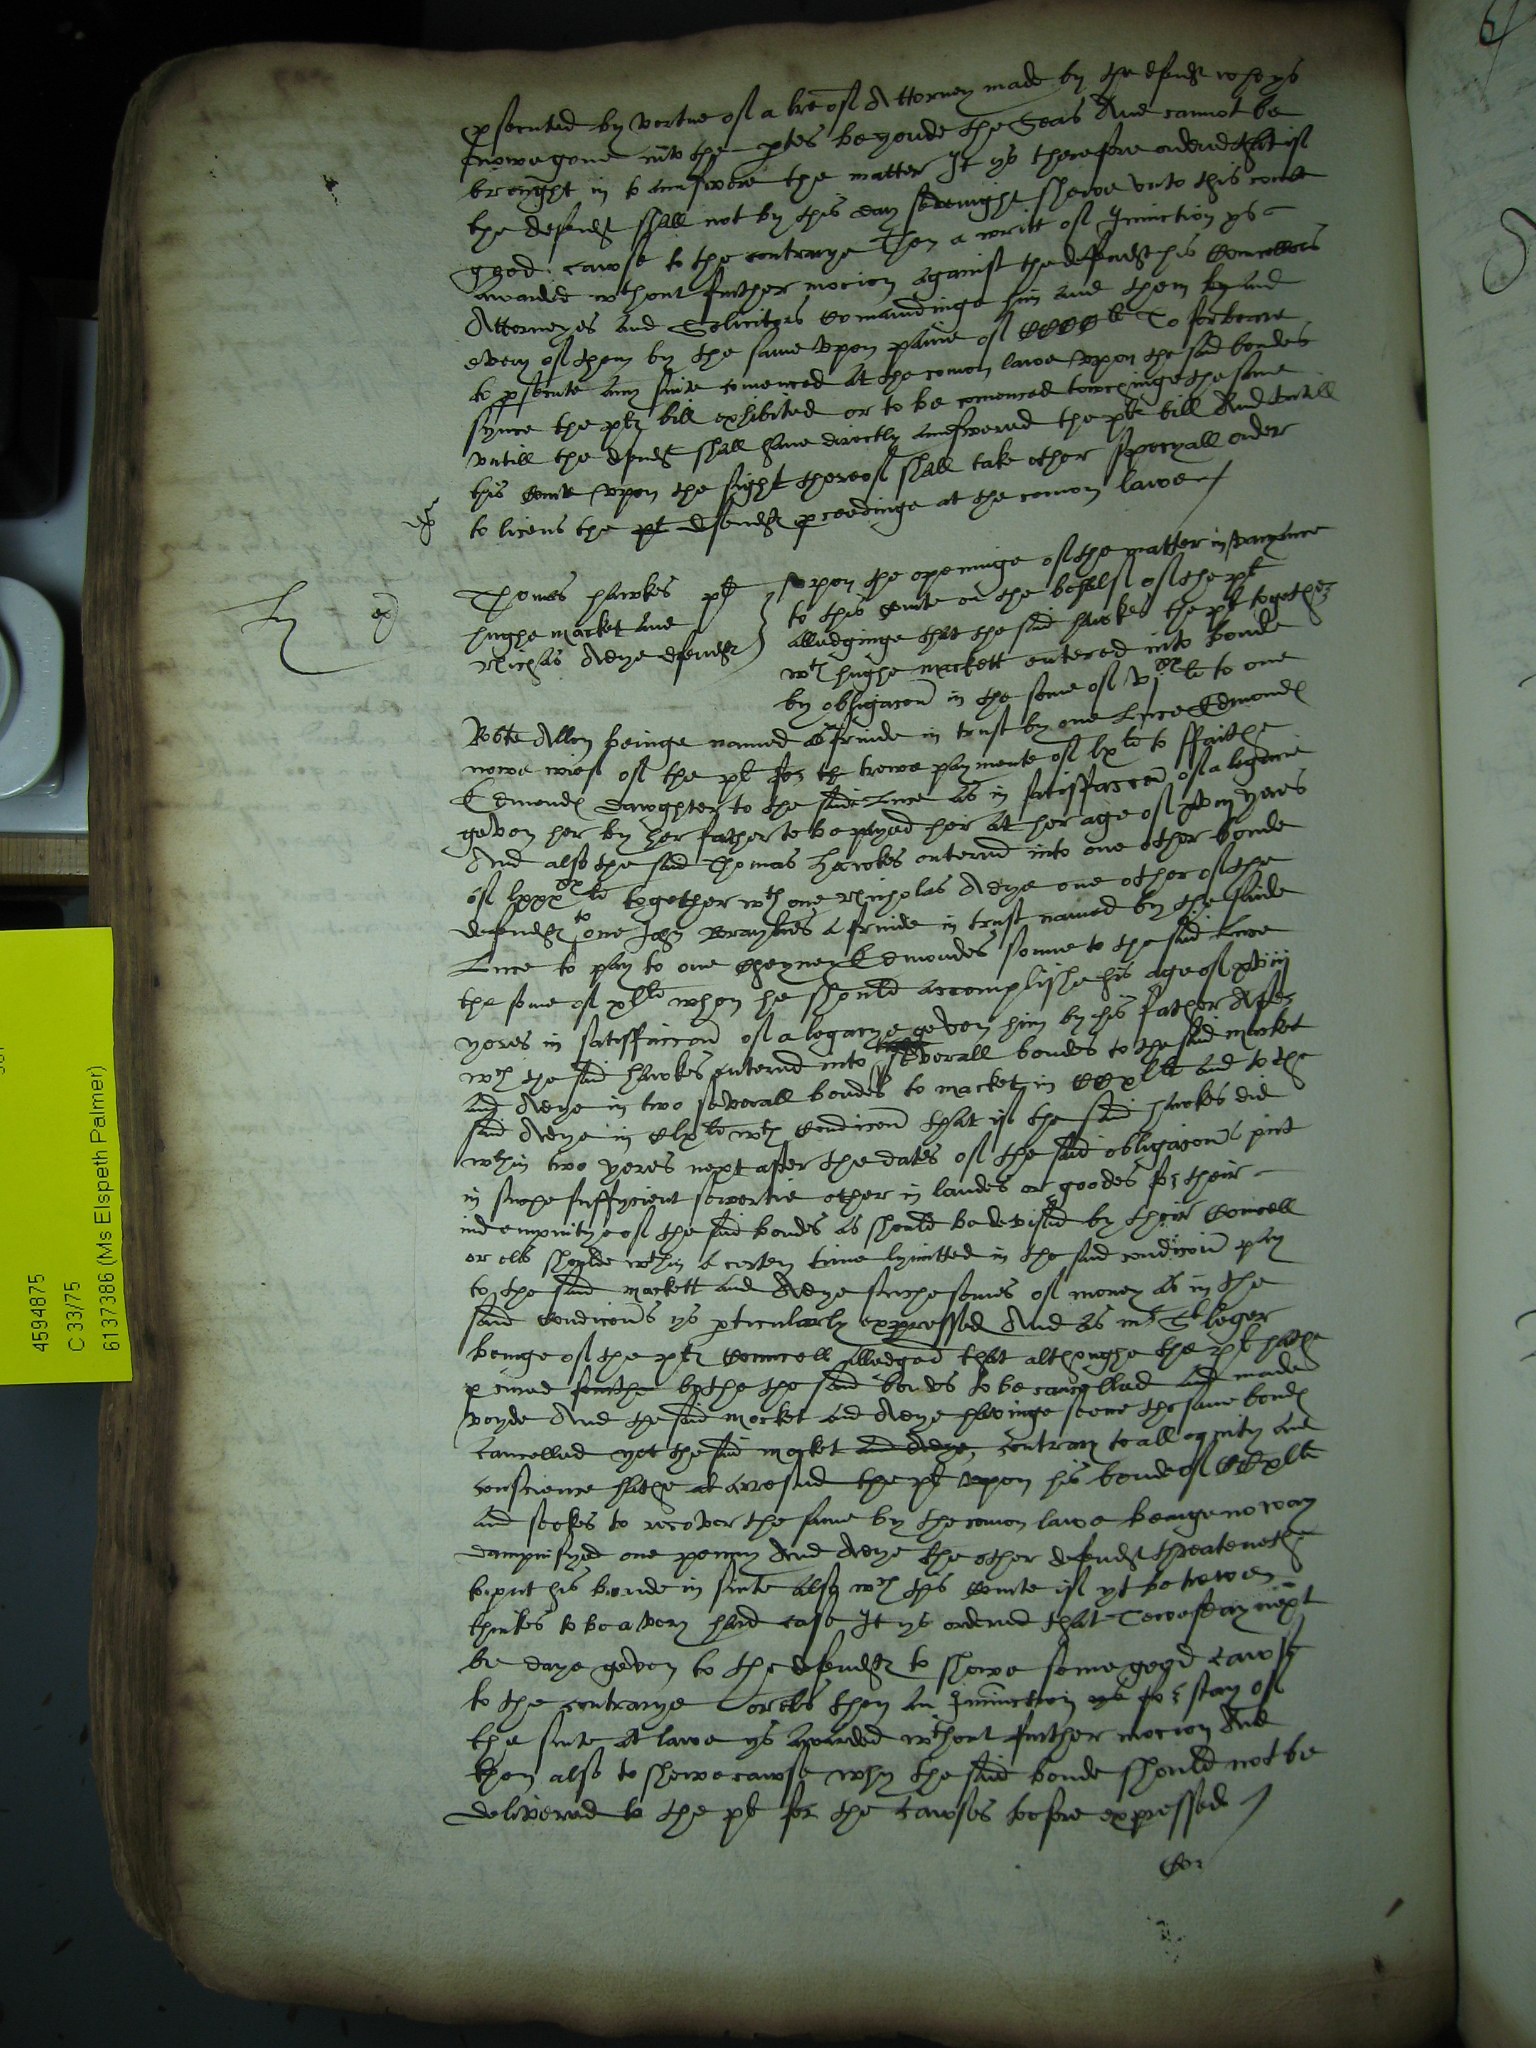 psecuted by vertue of a lre of Attorney made by the defendt who ys
nowe gone into the ptes beyonde the Seas And cannot be
brought in to aunswere the matter It ys therefore ordered that if
the defendt shall not by this day sevenight shewe unto this courte
good cawse to the contrarye Then a writt of Iniunction ys
awarded wthout further mocion against the deffendt his Councellors
Attorneyes and Solicitors Comaundinge him and them and
every of them by the same upon paine of CCCC li To forbeare
to psecute any suite comenced at the comon lawe upon the said bondes
synce the plts bill exhibited or to be comenced towchinge the same
untill the defendt shall have directly aunswered the plts bill And untill
this Courte upon the sight thereof shall take other specyall order
to licens the plt defendt pceedinge at the comon lawe /
Thomas Hawkes plt
Hughe Macket and
Nichas Adye defendts
Upon the openinge of the matter in varyaunce
to this Courte on the behalf of the plt
alledginge that the said Hawkes the plt together
wth Hughe Mackett entered into bonde
by obligacon in the some of vixx li to one
Robte Allen beinge named as frinde in trust by one Luce Edmonds
nowe wief of the plt for the trewe paymente of lx li to Ffaithe
Edmonds dawghter to the said Luce as in satisffaccon of a legacie
geven her by her father to be payed her at her age of xviij yeres
And also the said Thomas Hawkes entered into one other bonde
of lxxx li together wth one Nicholas Adye one other of the
defendts to one John Braybes a frinde in trust named by the saide
Luce to pay to one Cheyney Edmondes sonne to the said Luce
the some of xl li when he should accomplishe his age of xxiiij
yeres in satisffaccon of a legacye geven him by his father After
wch the said Hawkes entered into severall bondes to the said Macket
and Adye in two severall bondes to Macket in CCxl li and to the
said Adye in Clx li wth Condicon that if the said Hawkes did
wthin two yeres next after the dates of the said obligacons put
in suche suffycient sewertie either in landes or goodes for their
indempnitye of the said bondes as should be devised by their Councell
or els shoulde wthin a certen time lymitted in the said condicon pay
to the said Mackett and Adye suche somes of money as in the
said Condicons ys pticularly expressed And as mr St Leger
beinge of the plts Councell alledged that althoughe the plt hathe
pcured bothe the said bondes to be cancelled and made
voyde And the said Macket and Adye havinge seene the same bonds
cancelled yet the said Macket and Adye contrary to all equity and
conscience hathe arrested the plt upon his bonde of CCxl li
and seekes to recover the same by the comon lawe beinge no way
dampnifyed one penny And Adye the other defendt threatenethe
to put his bonde in suite also wch this Courte if yt be trewe
thinkes to be a very hard case It ys ordered that Tewesday next
be daye geven to the defendts to shewe some good cawse
to the contrarye or els then an Iniunction for stay of
the suite at lawe ys awarded wthout further mocion And
then also to shewe cawse why the said bonde should not be
delivered to the plt for the cawses before expressed /
4594875
C 33/75
6137386 (Ms Elspeth Palmer)